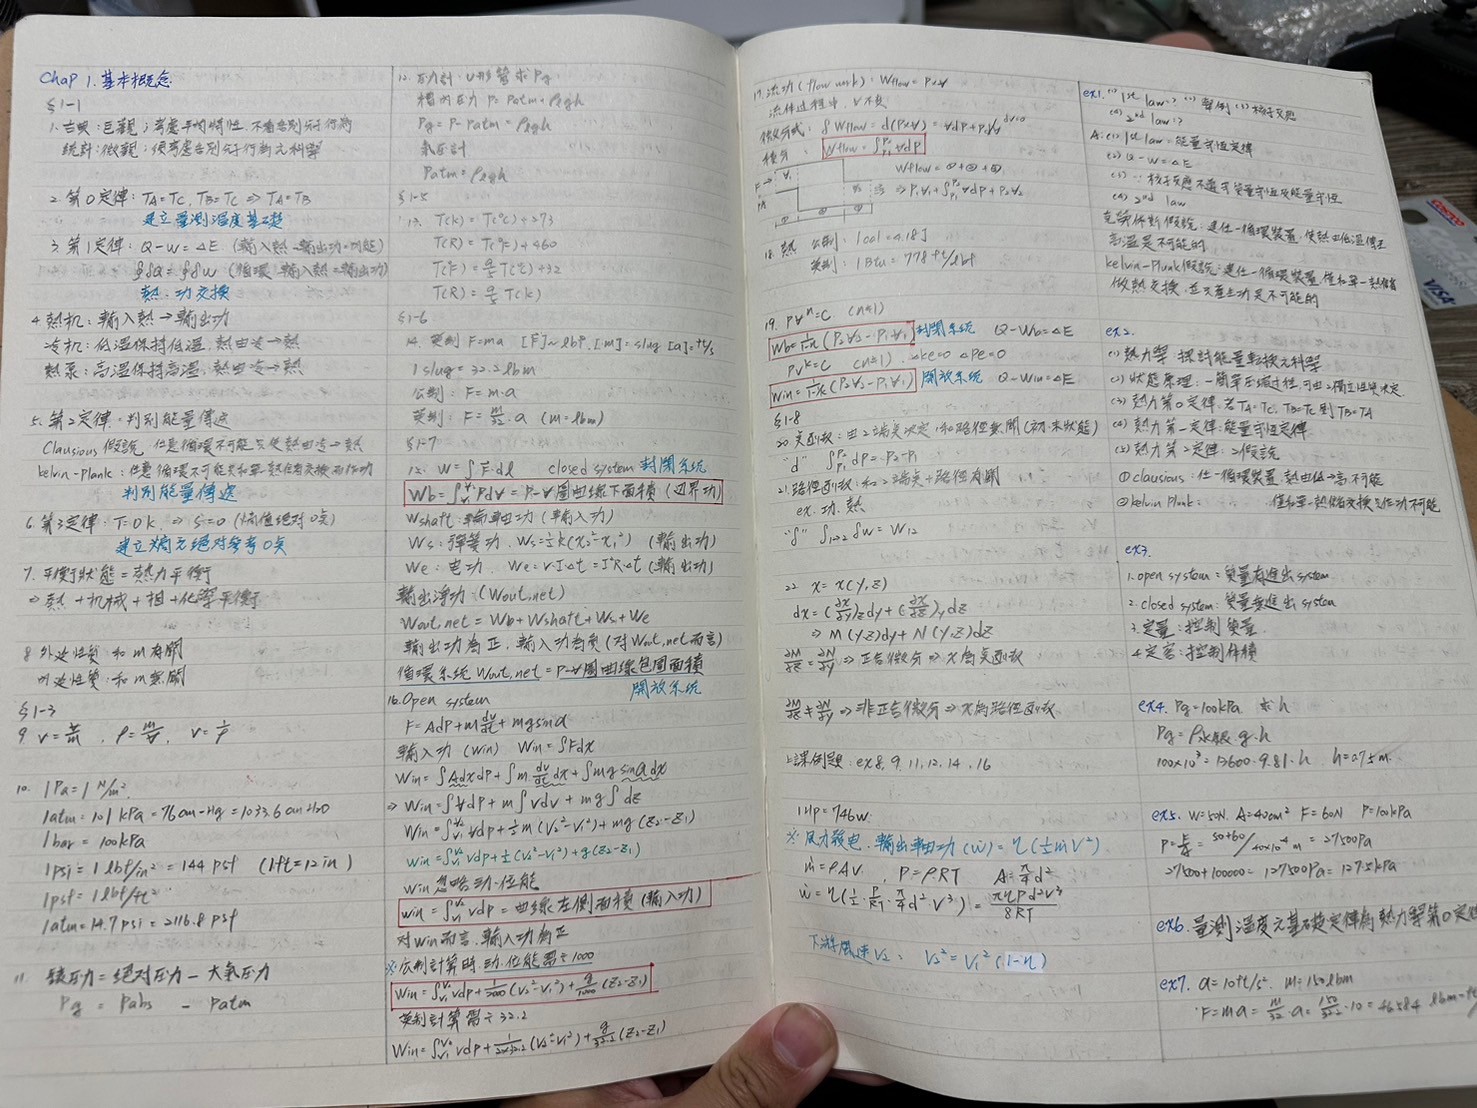 Chap 1. 基本概念
§1-1
1. 古典:巨觀;考慮平均特性,不考慮個別分子行為
統計:微觀;僅考慮個別分子行為之科學
2. 第0定律:TA=TC, TB=TC ⇒ TA=TB
建立量測溫度基礎
3. 第1定律:Q-W=ΔE (輸入熱-輸出功=功能)
∮δQ=∮δW (循環 輸入熱=輸出功)
熱.功交換
4. 熱机:輸入熱→輸出功
冷机:低溫保持低溫,熱由冷→熱
熱泵:高溫保持高溫,熱由冷→熱
5. 第2定律:判別能量傳遞
Clausious 假說:任意循環不可能只使熱由冷→熱
kelvin-plank:任意循環不可能只和單一熱儲有交換而作功
判別能量傳遞
6. 第3定律:T=0k, ⇒ S=0 (熵值絕对0点)
建立熵之絕对參考0点
7. 平衡狀態=熱力平衡
⇒ 熱+机械+相+化學平衡
8. 外延性質:和m有關
內延性質:和m無關
§1-3
9. v=∀/m , ρ=m/∀, v=1/ρ
10. 1Pa=1 N/m²
1atm=101 kPa=76cm-Hg=1033.6cmH2O
1bar=100kPa
1psi=1 lbf/in²=144 psf (1ft=12in)
1psf=1lbf/ft²
1atm=14.7psi=2116.8 psf
11. 錶压力=絕对压力-大氣压力
Pg = Pabs - Patm
12. 压力計:U形管求Pg
槽內压力 P=Patm+ρgh
Pg=P-Patm=ρgh
氣压計
Patm=ρgh
§1-5
13. T(k)=T(°C)+273
T(R)=T(°F)+460
T(°F)=9/5 T(°C)+32
T(R)=9/5 T(k)
§1-6
14. 英制 F=ma [F]~lbf, [m]=slug [a]=ft/s
1slug=32.2lbm
公制:F=m.a
英制:F=m/32.2.a (m=lbm)
§1-7
15. W=∫F.dl closed system 封閉系統
Wb=∫v1^v2 Pd∀=P-∀圖曲線下面積 (边界功)
Wshaft:輸軸功 (輸入功)
Ws:彈簧功, Ws=½k(x2²-x1²) (輸出功)
We:电功, We=V.I.Δt=I²R.Δt (輸出功)
輸出淨功:(Wout,net)
Wout,net=Wb+Wshaft+Ws+We
輸出功為正,輸入功為負(对Wout,net而言)
循環系統 Wout,net=P-∀圖曲線包圍面積
16. Open system 開放系統
F=AdP+m dv/dt+mgsinα
輸入功 (Win) Win=∫Fdx
Win=∫AdxdP+∫m dv/dt dx+∫mg sinα dx
⇒ Win=∫∀dP+m∫vdv+mg∫dz
Win=∫∀dP+½m(V2²-V1²)+mg(Z2-Z1)
win=∫vdp+½(V2²-V1²)+g(Z2-Z1)
Win 忽略动.位能
win=∫vdp=曲線左側面積(輸入功)
对Win而言,輸入功為正
※公制計算時,动.位能需÷1000
Win=∫vdp+1/2000(V2²-V1²)+g/1000(Z2-Z1)
英制計算需÷32.2
Win=∫vdp+1/2×32.2(V2²-V1²)+g/32.2(Z2-Z1)
17. 流功(flow work):Wflow=P×∀
流体过程中,V不变
微分式:δWflow=d(P×∀)=∀dP+Pd∀ d∀=0
積分:Wflow=∫P1^P2 ∀dP
Wflow=①+②+③
⇒ P1∀1+∫P1^P2 ∀dP+P2∀2
18. 熱 公制:1cal=4.18J
英制:1Btu=778ft/lbf
19. P∀ⁿ=C (n≠1)
Wb=1/1-n(P2∀2-P1∀1) 封閉系統 Q-Wb=ΔE
P∀ᵏ=C (n≠1) Δke=0 ΔPe=0
Win=1/1-k(P2∀2-P1∀1) 開放系統 Q-Win=ΔE
§1-8
20. 点函数:由2端点決定,和路徑無關(初.末狀態)
"d" ∫P1^P2 dP=P2-P1
21. 路徑函数:和2端点+路徑有關
ex. 功.熱
"δ" ∫1→2 δW=W12
22. x=x(y,z)
dx=(∂x/∂y)z dy+(∂x/∂z)y dz
⇒ M(y,z)dy+N(y,z)dz
∂M/∂z=∂N/∂y ⇒正合微分⇒x為点函数
∂M/∂z≠∂N/∂y ⇒非正合微分⇒x為路徑函数
上課例題:ex8. 9. 11. 12. 14. 16
1HP=746w
※風力發电,輸出軸功(ẇ)=η(½ṁV²)
ṁ=ρAV, P=ρRT A=π/4 d²
ẇ=η(½.P/RT.π/4 d².V³)=πηPd²V³/8RT
下游風速V2, V2²=V1²(1-η)
ex1. (1) 1st law? (2) 舉例 (3) 核子反應
(4) 2nd law?
A:(1) 1st law:能量守恒定律
(2) Q-W=ΔE
(3) ∵核子反應不遵守質量守恒及能量守恒
(4) 2nd law
克勞休斯假說:建任一循環裝置,使熱由低溫傳至
高溫是不可能的
kelvin-Plunk假說:建任一循環裝置,僅和單一熱儲富
做熱交換,並只產生功是不可能的
ex2.
(1) 熱力學:探討能量轉換之科學
(2) 狀態原理:一簡單压縮过程,可由2獨立性質決定
(3) 熱力第0定律:若TA=TC, TB=TC則TB=TA
(4) 熱力第一定律:能量守恒定律
(5) 熱力第2定律:2假說
①clausious:任一循環裝置,熱由低→高不可能
②kelvin Plunk: 僅和單一熱儲交換只作功不可能
ex3.
1. open system:質量有進出system
2. closed system:質量無進出system
3. 定量:控制質量
4. 定容:控制体積
ex4. Pg=100kPa 求h
Pg=ρ水銀 g.h
100×10³=13600.9.81.h, h=0.75m.
ex5. W=50N. A=40cm² F=60N P=100kPa
P=F/A=50+60/40×10⁻⁴ m=27500Pa
27500+100000=127500Pa=127.5kPa
ex6. 量測溫度之基礎定律為熱力學第0定律
ex7. a=10ft/s². m=150lbm
F=ma=m/32.2.a=150/32.2.10=46.584 lbm-ft/
COSTCO
VISA